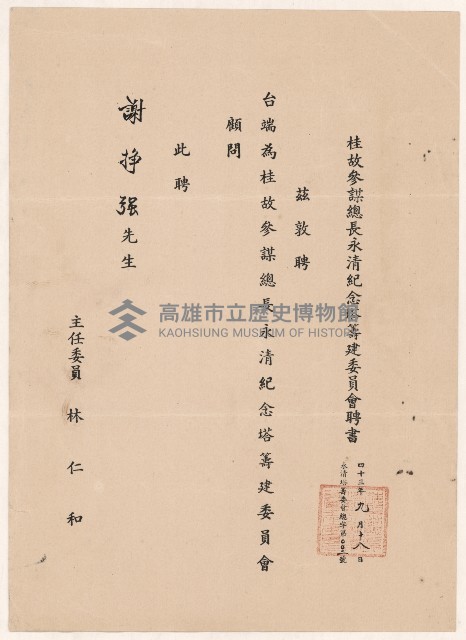 桂故參謀總長永清紀念塔籌建委員會聘書
四十三年九月十八日
永清塔籌委會總字第0
號
茲敦聘
台端為桂故參謀總長永清紀念塔籌建委員會
顧問
此聘
謝挣强先生
主任委員 林仁和
高雄市立歷史博物館
KAOHSIUNG MUSEUM OF HISTORY